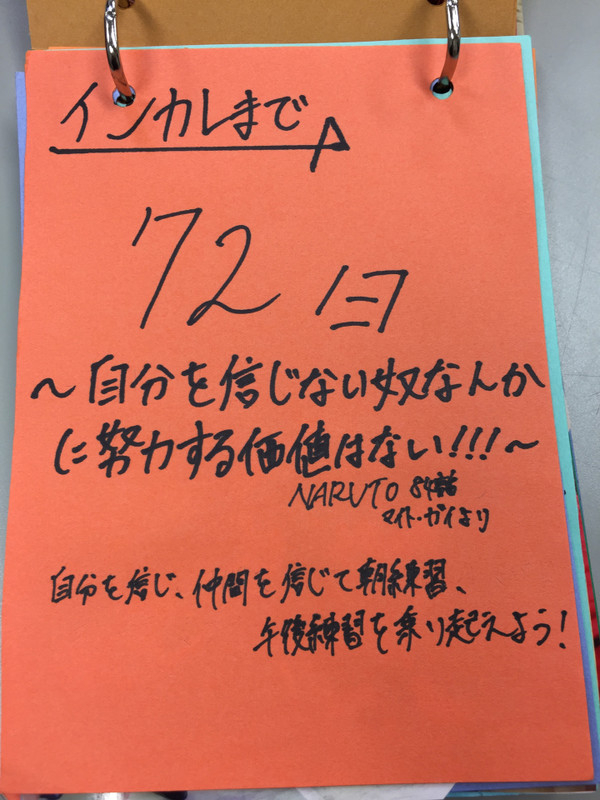 インカレまで
72日
～自分を信じない奴なんか
に努力する価値はない!!!～
NARUTO 84話
マイト・ガイより
自分を信じ、仲間を信じて朝練習、
午後練習を乗り起えよう!